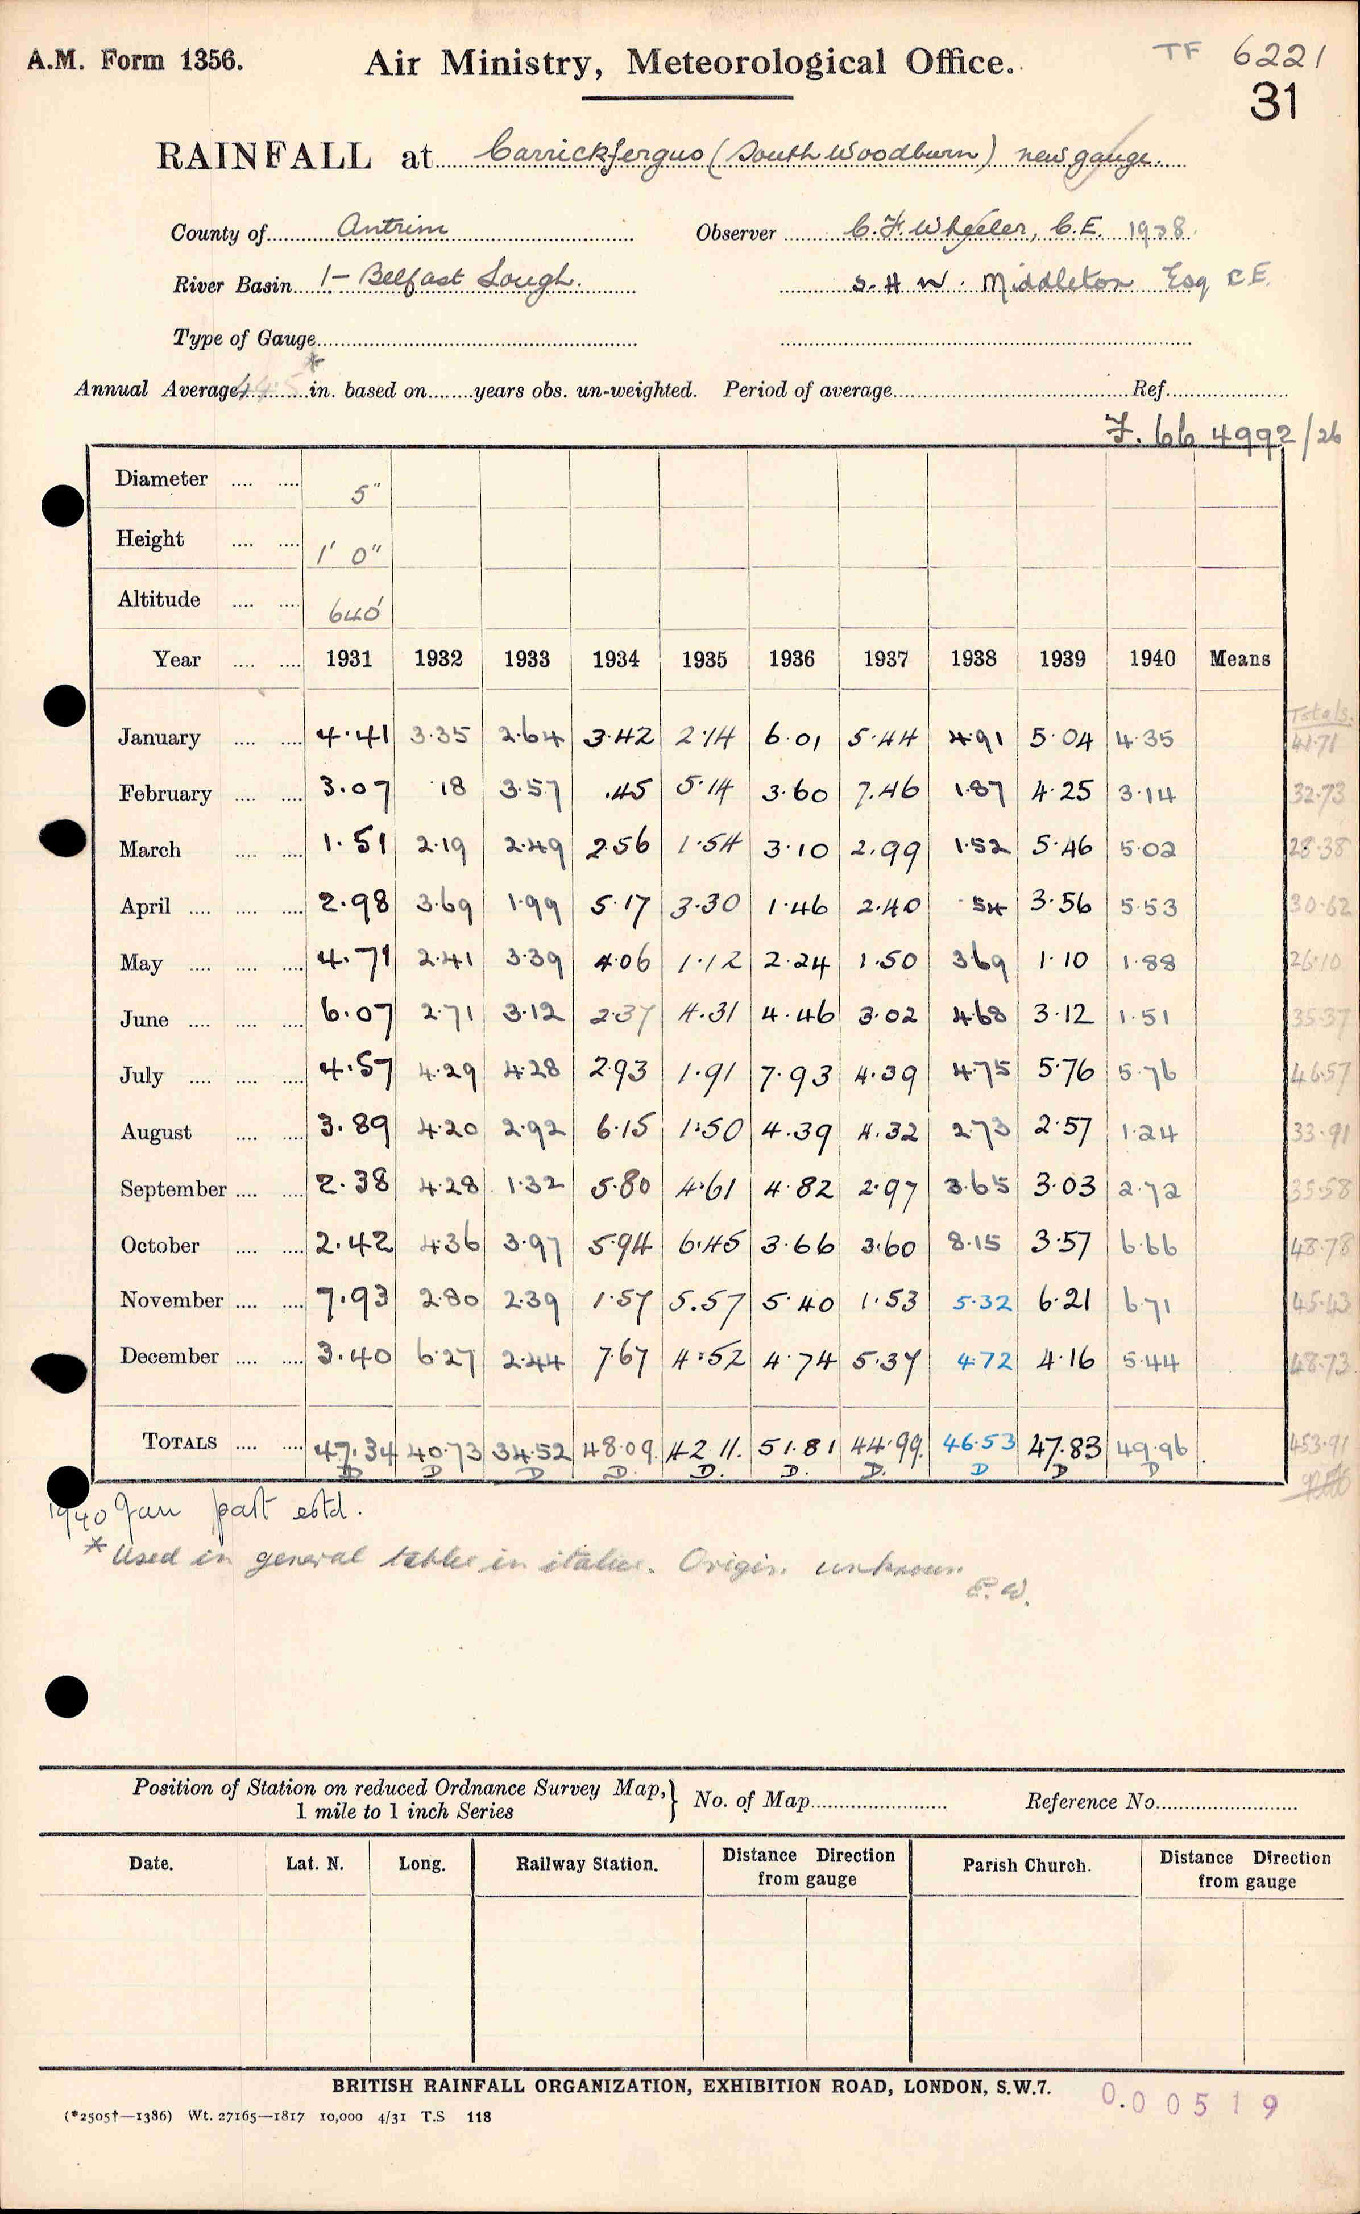 A.M. Form 1356. Air Ministry, Meteorological Office. TF 6221
31
RAINFALL at Carrickfergus (South Woodburn) new gauge.
County of Antrim Observer C. F. Wheeler, C.E. 1938
River Basin 1- Belfast Lough. S. H. W. Middleton Esq C.E.
Type of Gauge
Annual Average 44.5 * in. based on years obs. un-weighted. Period of average Ref.
F. bb 4992/26
Diameter 5"
Height 1' 0"
Altitude 640'
Year 1931 1932 1933 1934 1935 1936 1937 1938 1939 1940 Means
Totals.
January 4.41 3.35 2.64 3.42 2.14 6.01 5.44 4.91 5.04 4.35 41.71
February 3.07 .18 3.57 .45 5.14 3.60 7.46 1.87 4.25 3.14 32.73
March 1.51 2.19 2.49 2.56 1.54 3.10 2.99 1.52 5.46 5.02 28.38
April 2.98 3.69 1.99 5.17 3.30 1.46 2.40 .54 3.56 5.53 30.62
May 4.71 2.41 3.39 4.06 1.12 2.24 1.50 3.69 1.10 1.88 26.10
June 6.07 2.71 3.12 2.37 4.31 4.46 3.02 4.68 3.12 1.51 35.37
July 4.57 4.29 4.28 2.93 1.91 7.93 4.39 4.75 5.76 5.76 46.57
August 3.89 4.20 2.92 6.15 1.50 4.39 4.32 2.73 2.57 1.24 33.91
September 2.38 4.28 1.32 5.80 4.61 4.82 2.97 3.65 3.03 2.72 35.58
October 2.42 4.36 3.97 5.94 6.45 3.66 3.60 8.15 3.57 6.66 48.78
November 7.93 2.80 2.39 1.57 5.57 5.40 1.53 5.32 6.21 6.71 45.43
December 3.40 6.27 2.44 7.67 4.52 4.74 5.37 4.72 4.16 5.44 48.73
TOTALS 47.34 40.73 34.52 48.09 42.11. 51.81 44.99. 46.53 47.83 49.96 453.91
D D D D. D. D. D. D D D
1940 Jan part estd.
* Used in general table in italics. Origin unknown
E.W.
Position of Station on reduced Ordnance Survey Map,
1 mile to 1 inch Series } No. of Map Reference No.
Date. Lat. N. Long. Railway Station. Distance Direction from gauge Parish Church. Distance Direction from gauge
BRITISH RAINFALL ORGANIZATION, EXHIBITION ROAD, LONDON, S.W.7.
0.00519
(*2505†—1386) Wt. 27165—1817 10,000 4/31 T.S 118